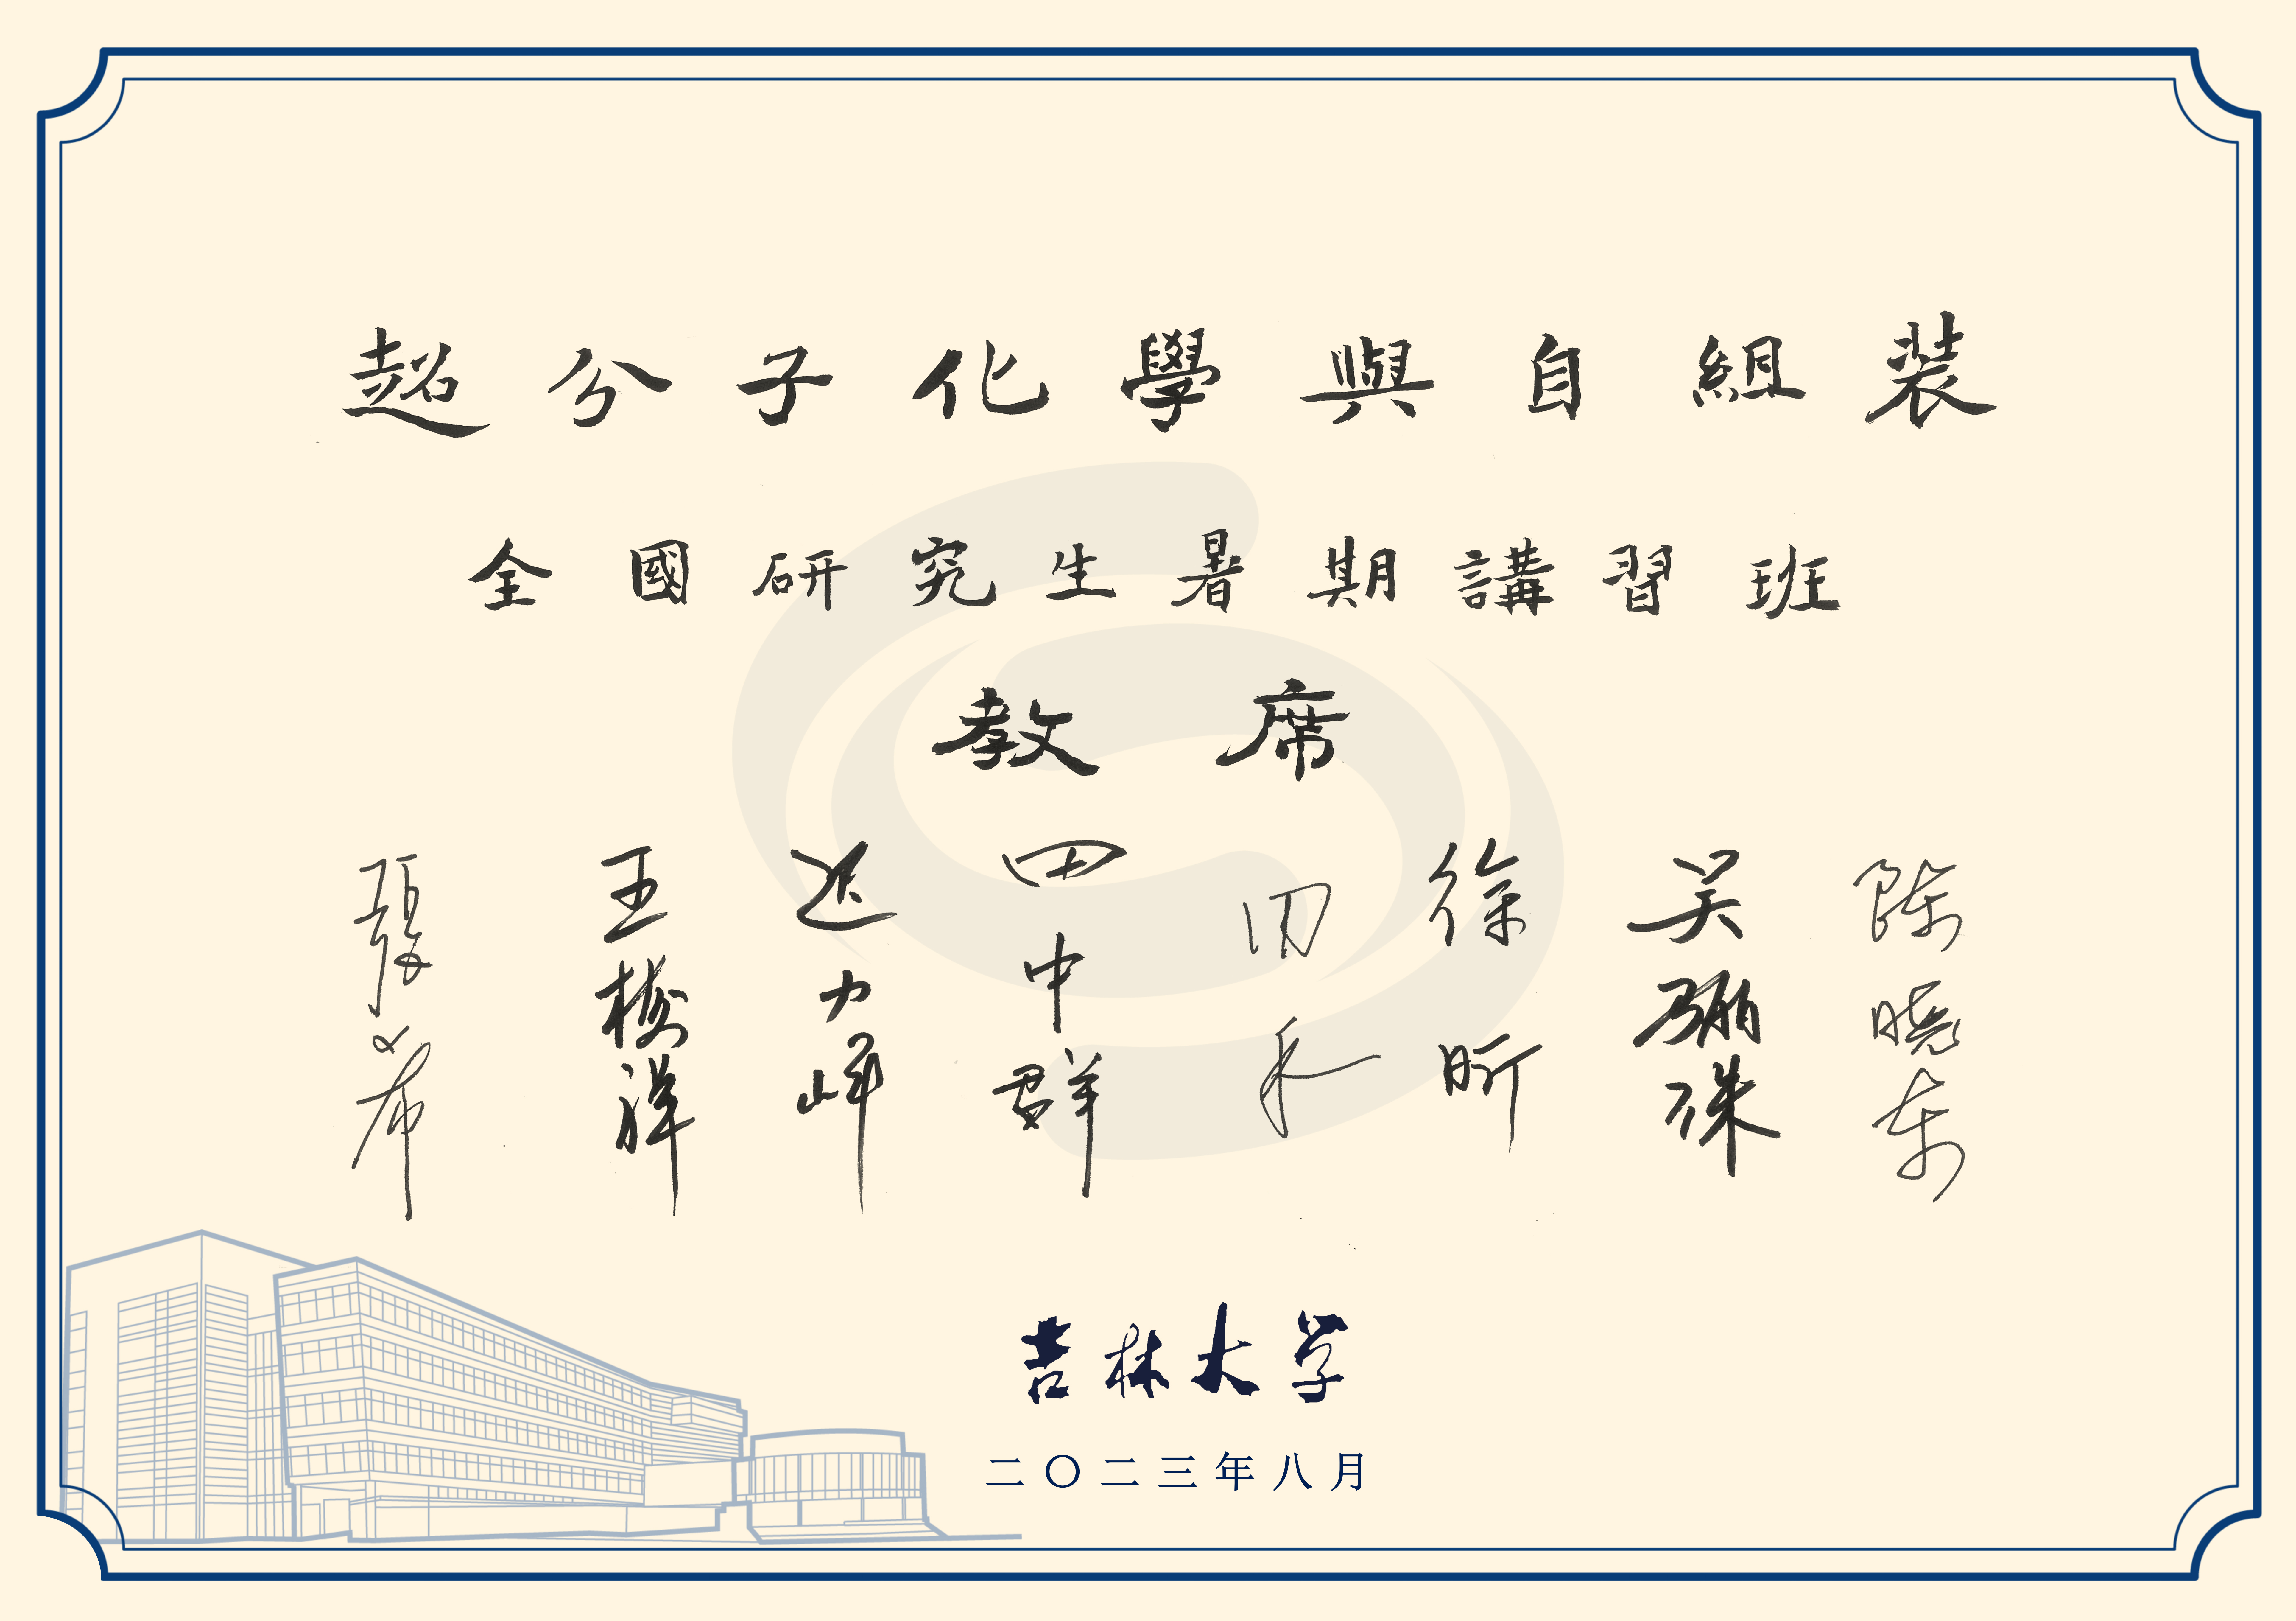 超分子化學與自組裝
全國研究生暑期講習班
教席
張希
王樹
迟力峰
田中群
田禾
徐昕
吴骊珠
陈晓东
吉林大学
二〇二三年八月